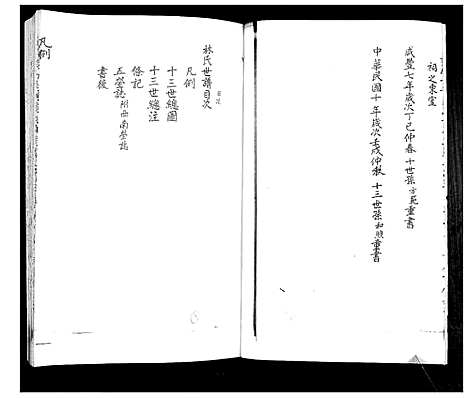 祠之東室
咸豐七年歲次丁巳仲春十世孫方苑重書
中華民國十年歲次壬戌仲秋十三世孫和照重書
林氏世譜目次
十三世總圖
十三世總注
條記
五塋誌附西南塋誌
書後
凡例